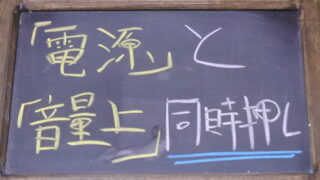 「電源」と
「音量上」同時押し